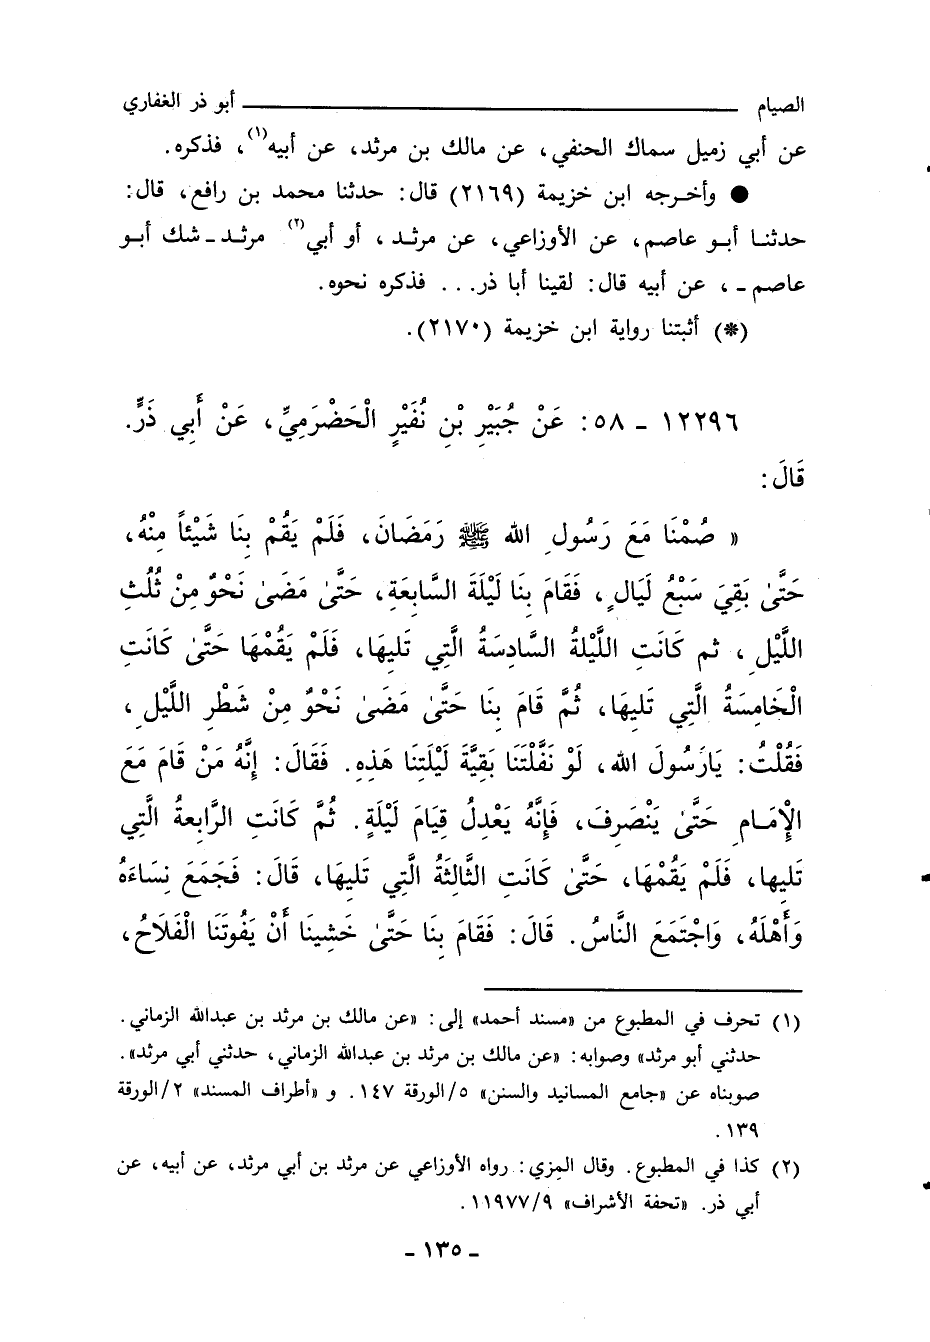 الصيام ـــــــــــــــ أبو ذر الغفاري
عن أبي زميل سماك الحنفي، عن مالك بن مرثد، عن أبيه(١)، فذكره.
● وأخرجه ابن خزيمة (٢١٦٩) قال: حدثنا محمد بن رافع، قال:
حدثنا أبو عاصم، عن الأوزاعي، عن مرثد، أو أبي(٢) مرثد ـ شك أبو
عاصم ـ، عن أبيه قال: لقينا أبا ذر... فذكره نحوه.
(*) أثبتنا رواية ابن خزيمة (٢١٧٠).
١٢٢٩٦ ـ ٥٨: عَنْ جُبَيْرِ بْنِ نُفَيْرٍ الْحَضْرَمِيِّ، عَنْ أَبِي ذَرٍّ.
قَالَ:
« صُمْنَا مَعَ رَسُولِ الله ﷺ رَمَضَانَ، فَلَمْ يَقُمْ بِنَا شَيْئاً مِنْهُ،
حَتَّىٰ بَقِيَ سَبْعُ لَيَالٍ، فَقَامَ بِنَا لَيْلَةَ السَّابِعَةِ، حَتَّىٰ مَضَىٰ نَحْوٌ مِنْ ثُلُثِ
اللَّيْلِ، ثم كَانَتِ اللَّيْلَةُ السَّادِسَةُ الَّتِي تَلِيهَا، فَلَمْ يَقُمْهَا حَتَّىٰ كَانَتِ
الْخَامِسَةُ الَّتِي تَلِيهَا، ثُمَّ قَامَ بِنَا حَتَّىٰ مَضَىٰ نَحْوٌ مِنْ شَطْرِ اللَّيْلِ،
فَقُلْتُ: يَارَسُولَ الله، لَوْ نَفَّلْتَنَا بَقِيَّةَ لَيْلَتِنَا هَذِهِ. فَقَالَ: إِنَّهُ مَنْ قَامَ مَعَ
الإِْمَامِ حَتَّىٰ يَنْصَرِفَ، فَإِنَّهُ يَعْدِلُ قِيَامَ لَيْلَةٍ. ثُمَّ كَانَتِ الرَّابِعةُ الَّتِي
تَلِيها، فَلَمْ يَقُمْهَا، حَتَّىٰ كَانَتِ الثَّالِثَةُ الَّتِي تَلِيهَا، قَالَ: فَجَمَعَ نِسَاءَهُ
وَأَهْلَهُ، وَاجْتَمَعَ النَّاسُ. قَالَ: فَقَامَ بِنَا حَتَّىٰ خَشِينَا أَنْ يَفُوتَنَا الْفَلَاحُ،
(١) تحرف في المطبوع من «مسند أحمد» إلى: «عن مالك بن مرثد بن عبدالله الزماني.
حدثني أبو مرثد» وصوابه: «عن مالك بن مرثد بن عبدالله الزماني، حدثني أبي مرثد».
صوبناه عن «جامع المسانيد والسنن» ٥/الورقة ١٤٧. و «أطراف المسند» ٢/الورقة
١٣٩.
(٢) كذا في المطبوع. وقال المِزي: رواه الأوزاعي عن مرثد بن أبي مرثد، عن أبيه، عن
أبي ذر. «تحفة الأشراف» ١١٩٧٧/٩.
ـ ١٣٥ ـ